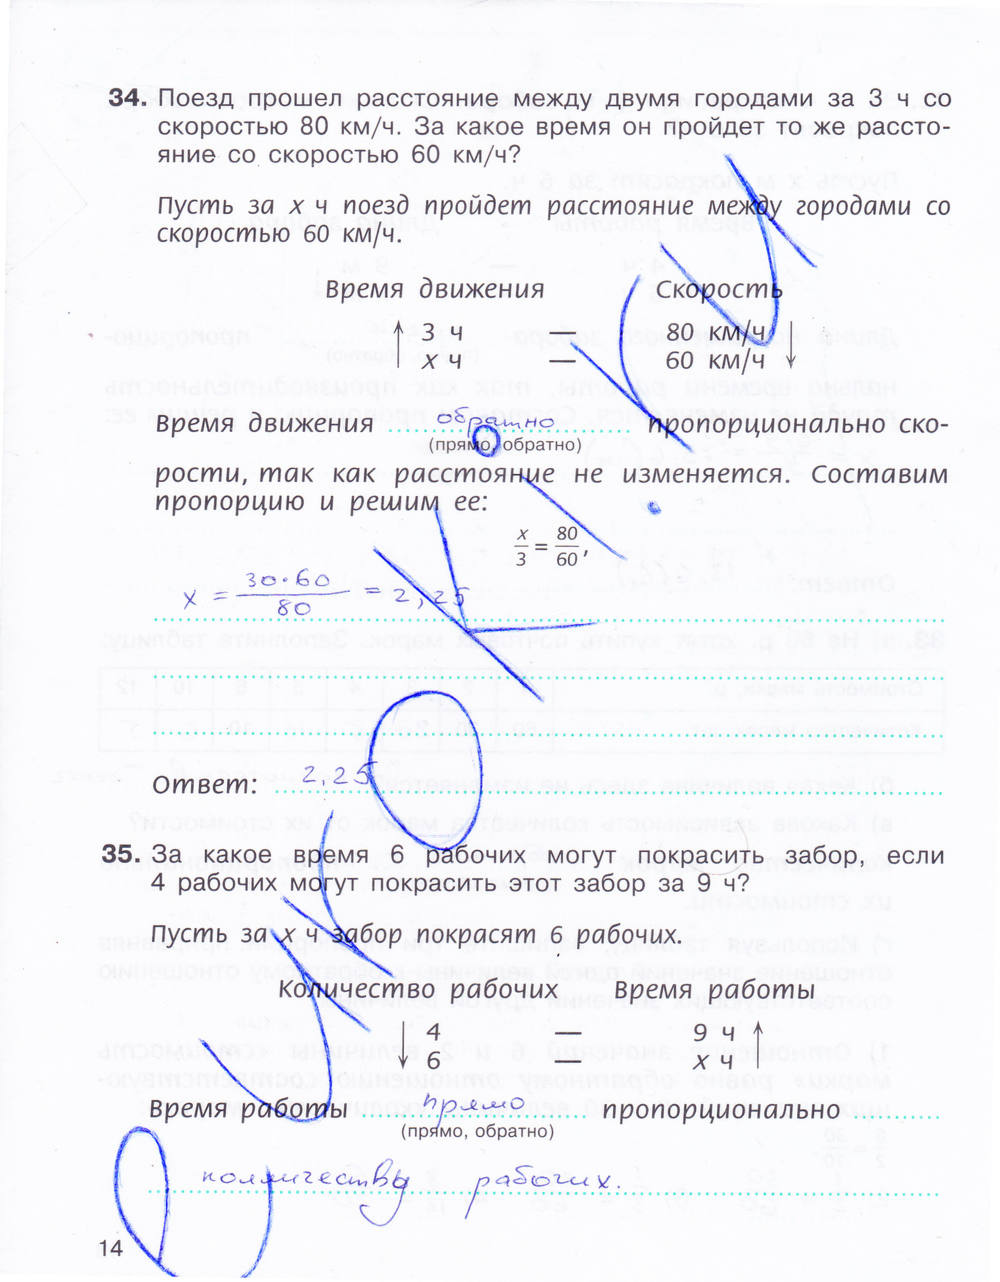 34. Поезд прошел расстояние между двумя городами за 3 ч со
скоростью 80 км/ч. За какое время он пройдет то же рассто-
яние со скоростью 60 км/ч?
Пусть за x ч поезд пройдет расстояние между городами со
скоростью 60 км/ч.
Время движения Скорость
↑ 3 ч — 80 км/ч ↓
x ч — 60 км/ч
Время движения обратно пропорционально ско-
(прямо, обратно)
рости, так как расстояние не изменяется. Составим
пропорцию и решим ее:
x/3 = 80/60,
x = 30·60/80 = 2,25
Ответ: 2,25
35. За какое время 6 рабочих могут покрасить забор, если
4 рабочих могут покрасить этот забор за 9 ч?
Пусть за x ч забор покрасят 6 рабочих.
Количество рабочих Время работы
↓ 4 — 9 ч ↑
6 — x ч
Время работы прямо пропорционально
(прямо, обратно)
рабочих.
14